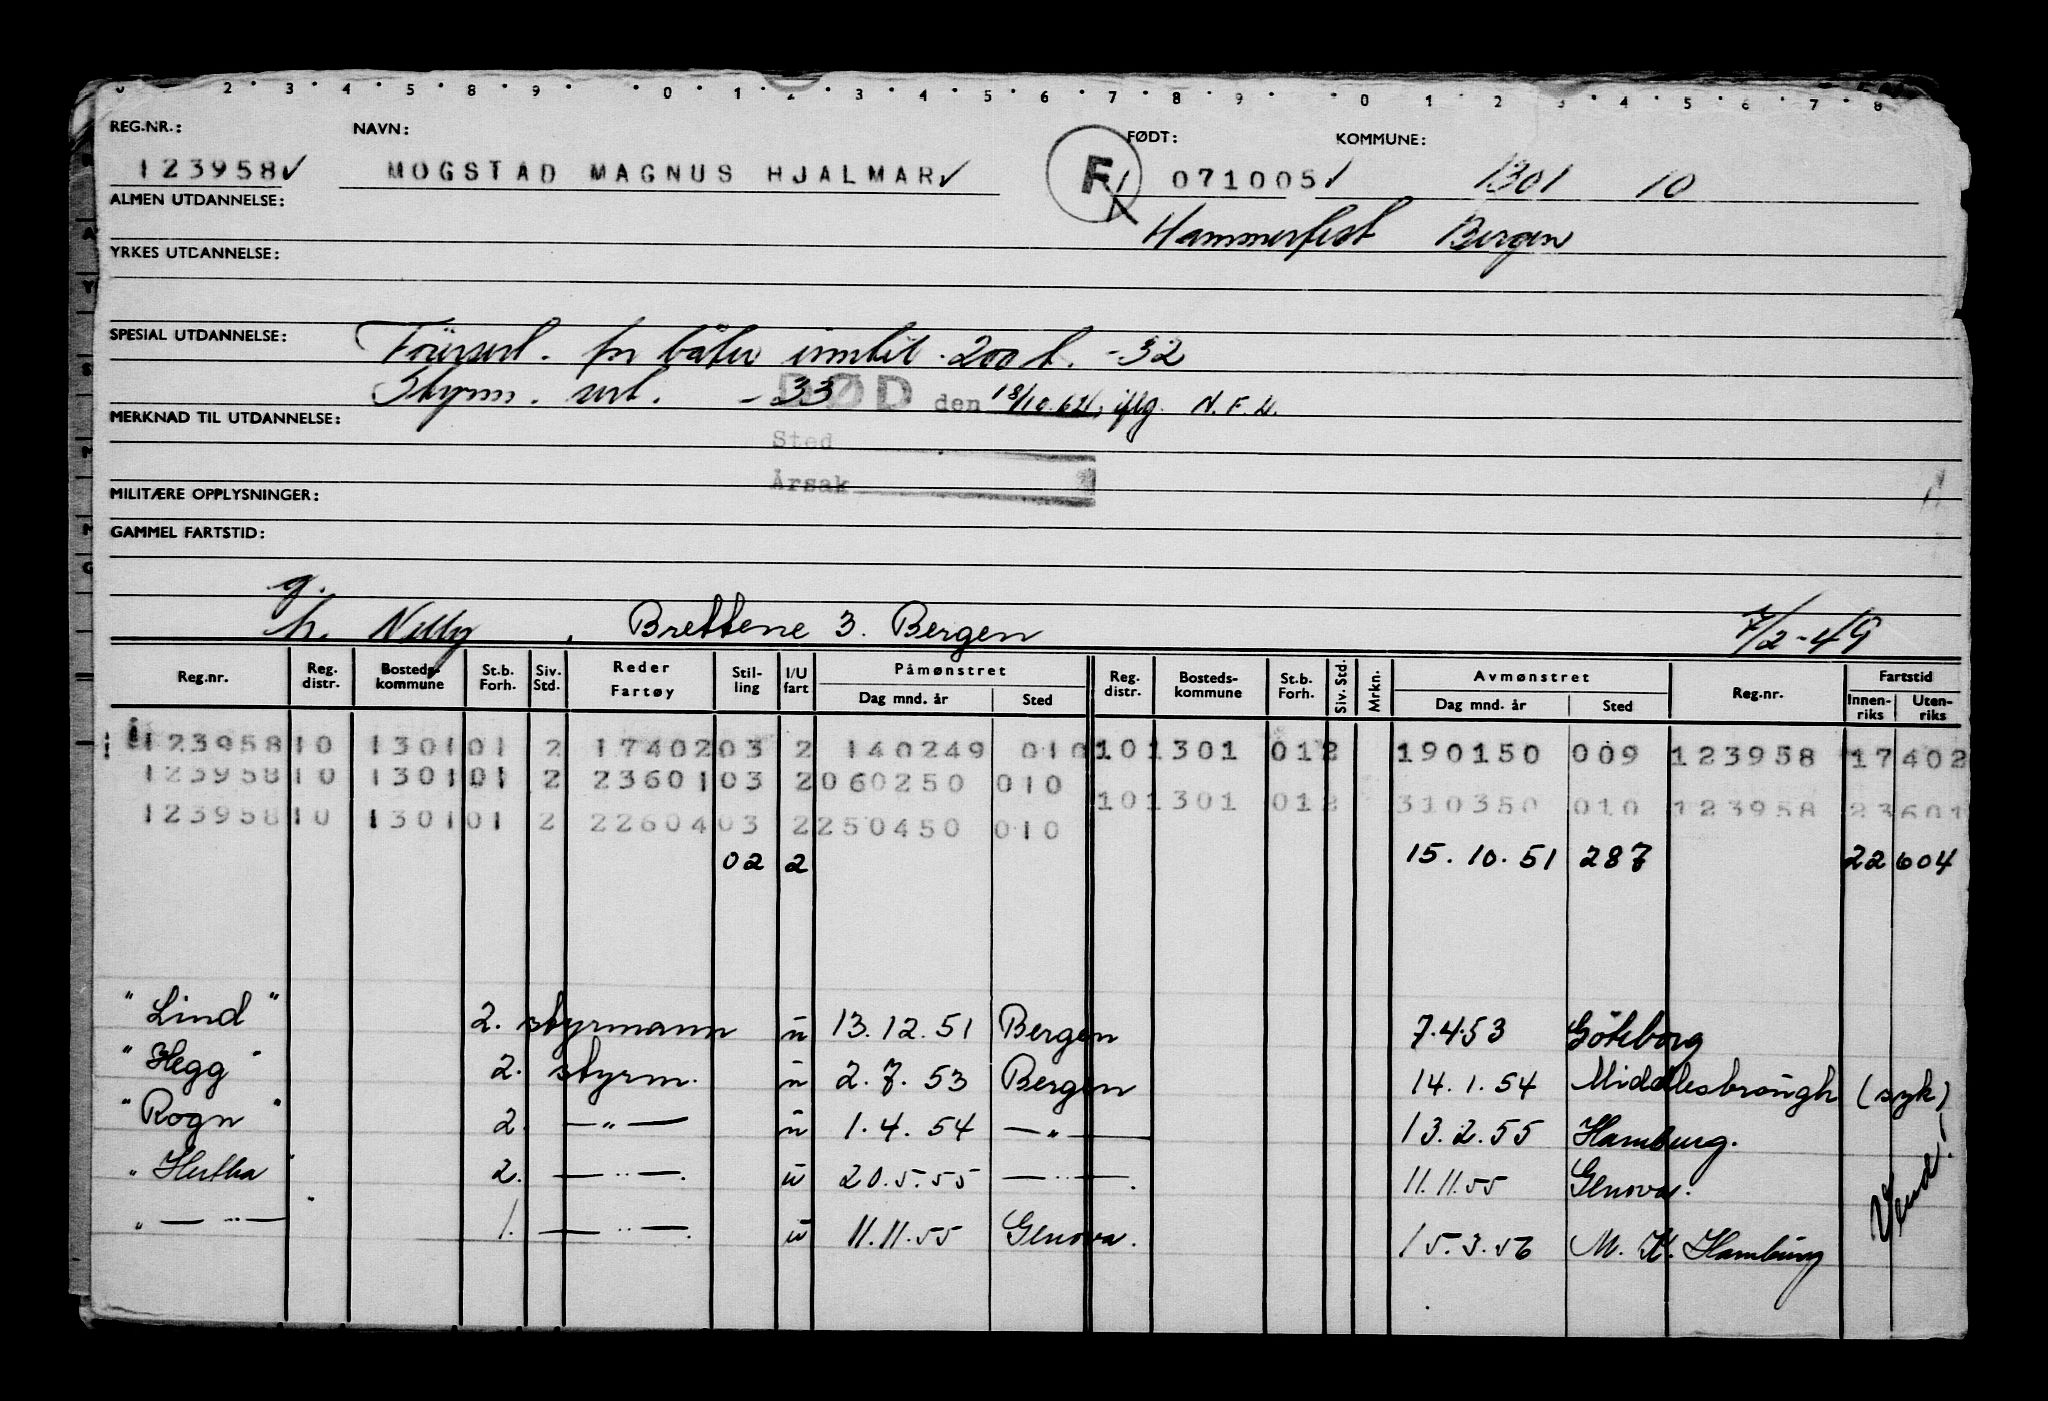 2 3 4 5 8 9 0 1 2 3 4 5 6 7 8 9 0 1 2 3 4 5 6 7 8
REG.NR.: NAVN: FØDT: KOMMUNE:
123958 MOGSTAD MAGNUS HJALMAR F 071005 1301 10
ALMEN UTDANNELSE: Hammerfest Bergen
YRKES UTDANNELSE:
SPESIAL UTDANNELSE: for båter inntil 200 t. -32
Styrm. - 33
DØD den 18/10.62, iflg.
MERKNAD TIL UTDANNELSE:
Sted
Årsak
MILITÆRE OPPLYSNINGER:
GAMMEL FARTSTID:
g.
h. Nelly, Brettene 3. Bergen 7/2-49
Reg.nr. Reg. distr. Bosteds-kommune St.b. Forh. Siv. Std. Reder Fartøy Stil-ling I/U fart Påmønstret Dag mnd. år Sted Reg. distr. Bosteds-kommune St.b. Forh. Siv. Std. Mrkn. Avmønstret Dag mnd. år Sted Reg.nr. Fartstid Innen-riks Uten-riks
123958 10 1301 01 2 17402 03 2 140249 010 10 1301 01 2 190150 009 123958 17402
123958 10 1301 01 2 23601 03 2 060250 010 10 1301 01 2 310350 010 123958 23601
123958 10 1301 01 2 22604 03 2 250450 010
02 2 15.10.51 287 22 604
"Lind" 2. styrmann u 13.12.51 Bergen 7.4.53 Göteborg
"Hegg" 2. styrm. u 2.7.53 Bergen 14.1.54 Middlesbrough (syk)
"Rogn" 2. —"— u 1.4.54 —"— 13.2.55 Hamburg.
"Hertha" 2. —"—. u 20.5.55 —"—. 11.11.55 Genova.
"—"—" 1. —"—. u 11.11.55 Genova. 15.3.56 M. K. Hamburg
Vend!